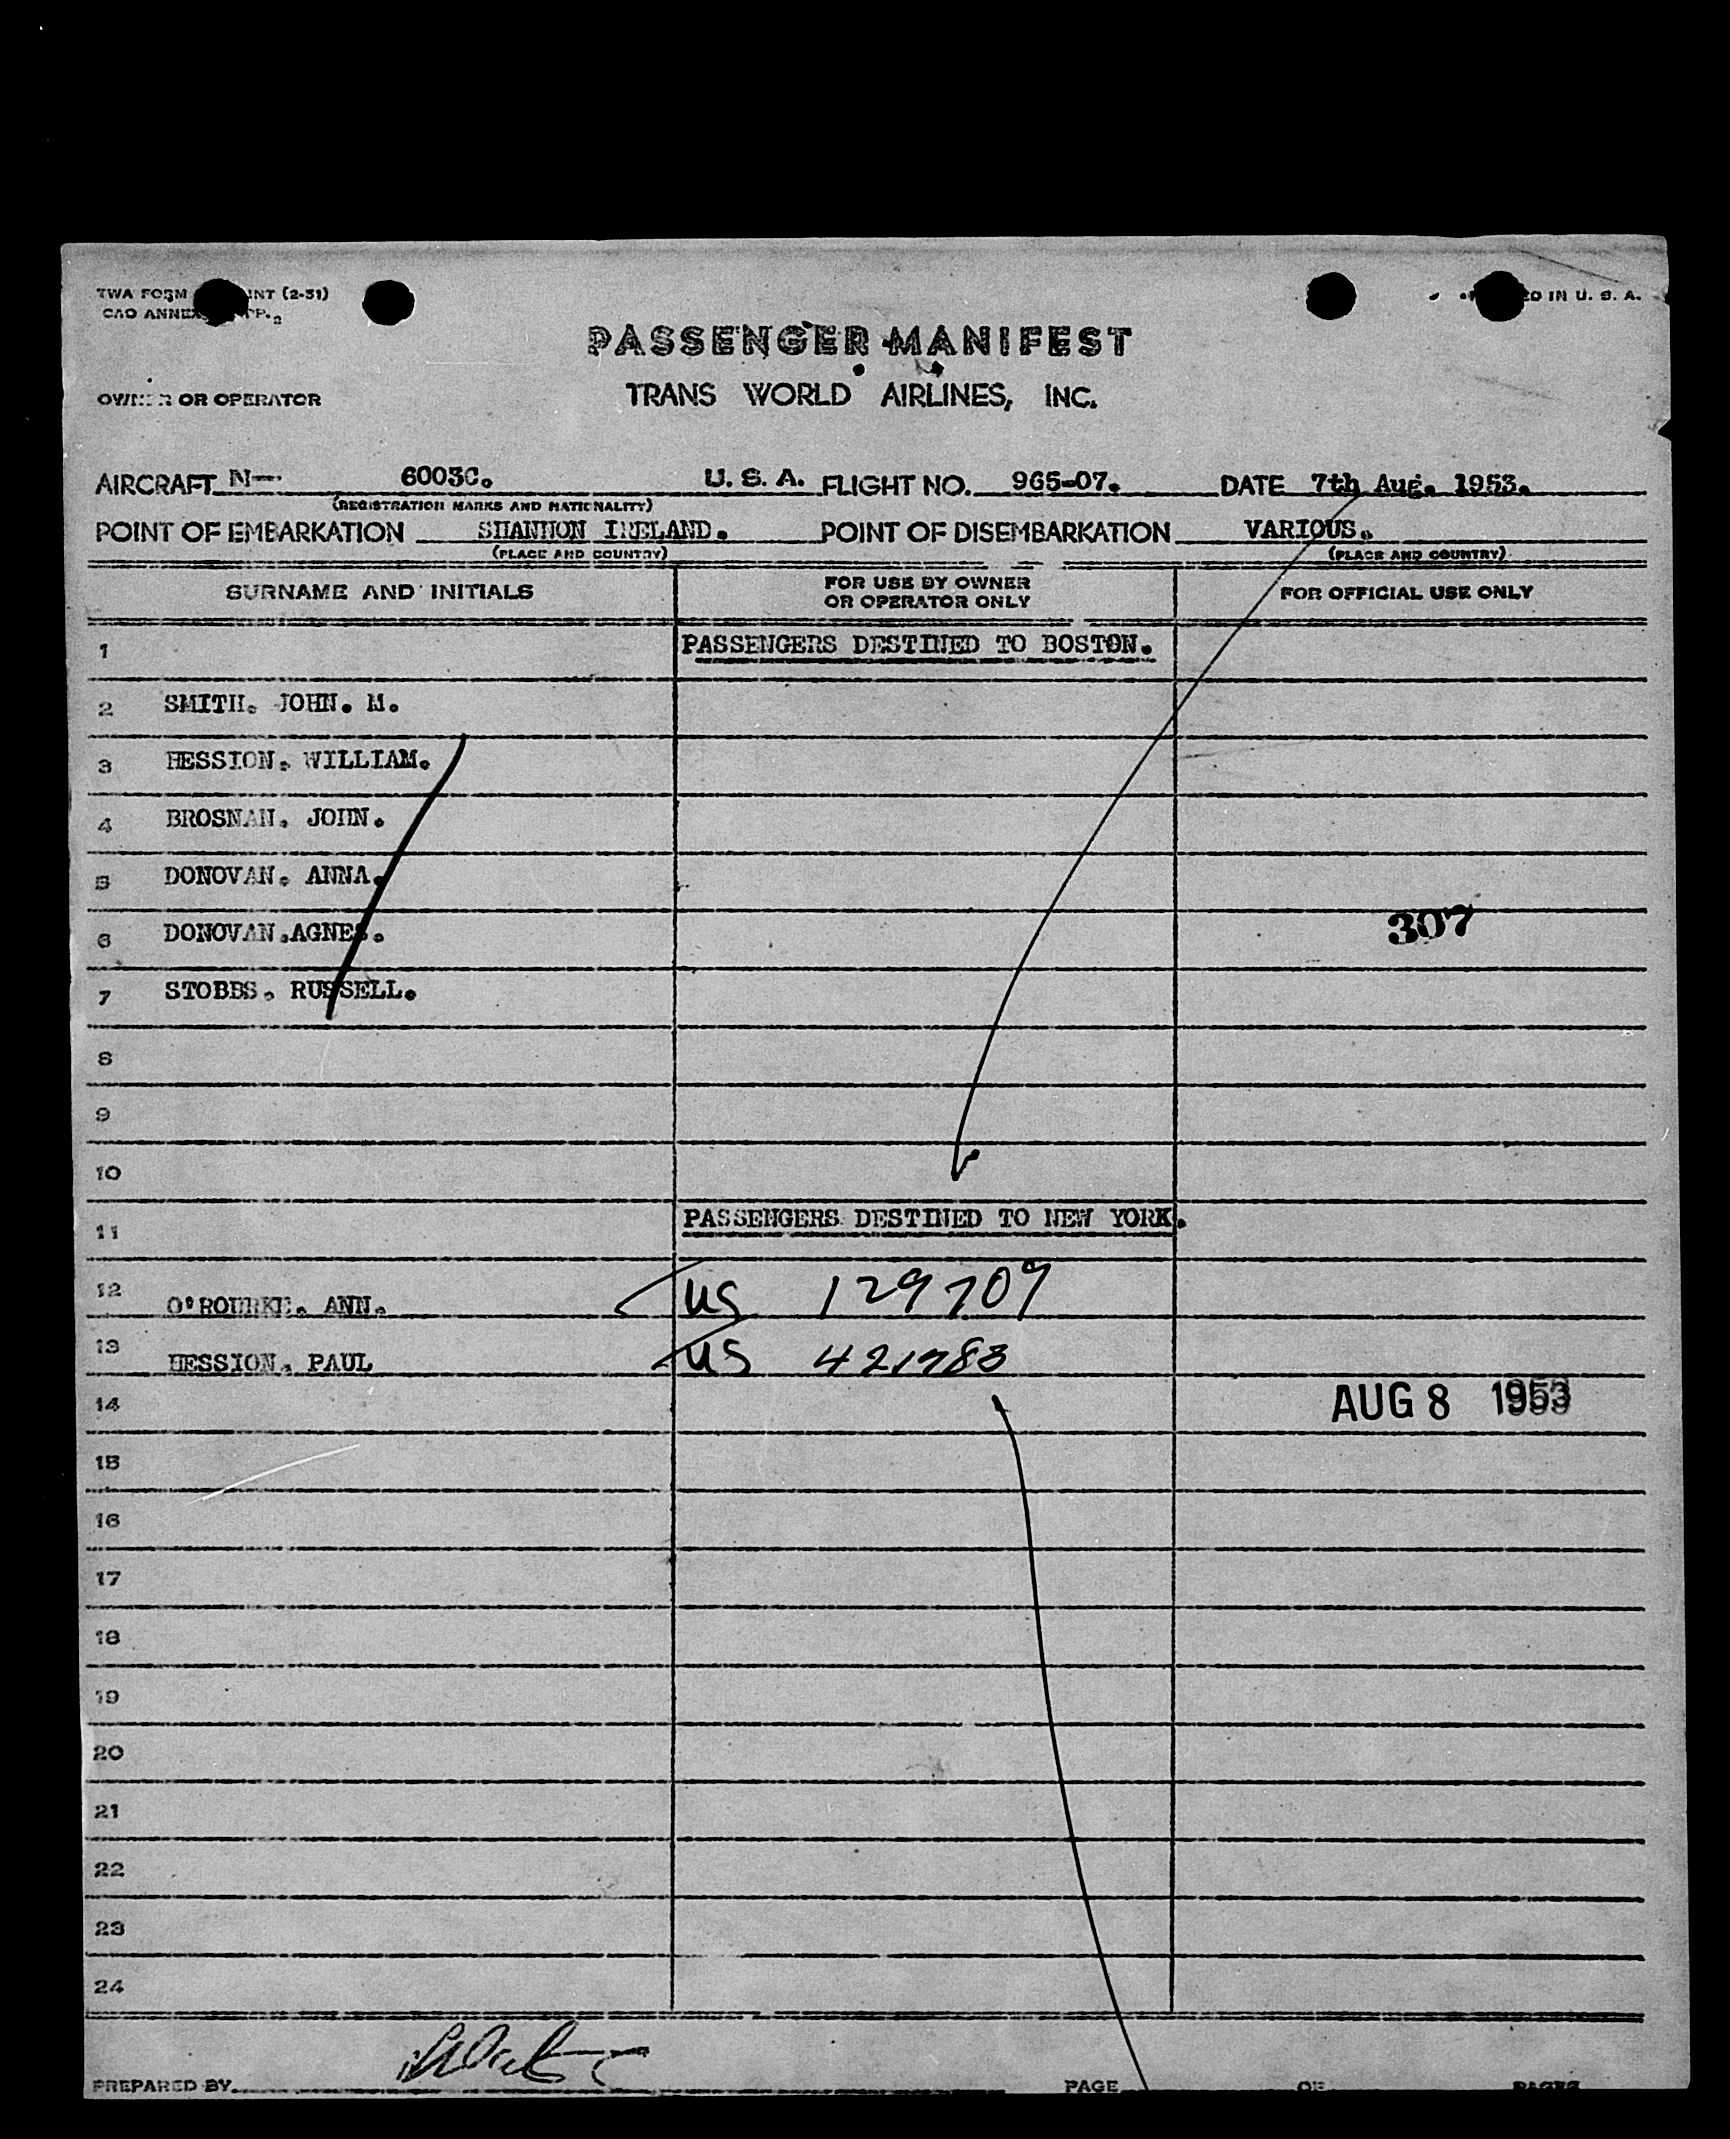 TWA FORM INT (2-51)
CAO ANNEX PP. 2
IN U. S. A.
PASSENGER MANIFEST
OWNER OR OPERATOR TRANS WORLD AIRLINES, INC.
AIRCRAFT N— 6003C. U. S. A. FLIGHT NO. 965-07. DATE 7th Aug. 1953.
(REGISTRATION MARKS AND NATIONALITY)
POINT OF EMBARKATION SHANNON IRELAND. POINT OF DISEMBARKATION VARIOUS.
(PLACE AND COUNTRY) (PLACE AND COUNTRY)
SURNAME AND INITIALS FOR USE BY OWNER OR OPERATOR ONLY FOR OFFICIAL USE ONLY
1 PASSENGERS DESTINED TO BOSTON.
2 SMITH. JOHN. M.
3 HESSION. WILLIAM.
4 BROSNAN. JOHN.
5 DONOVAN. ANNA.
6 DONOVAN.AGNES. 307
7 STOBBS. RUSSELL.
8
9
10
11 PASSENGERS DESTINED TO NEW YORK.
12 O'ROURKE. ANN. US 129709
13 HESSION. PAUL US 421783
14 AUG 8 1953
15
16
17
18
19
20
21
22
23
24
PREPARED BY PAGE OF PAGES